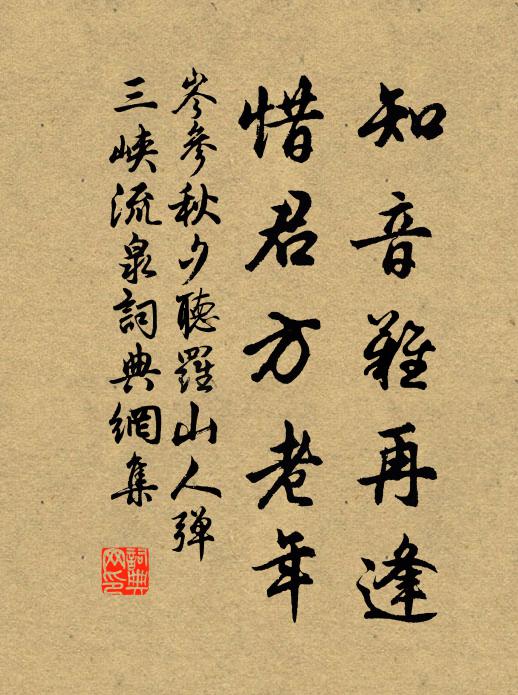 知音難再逢
惜君方老年
岑參秋夕聽羅山人彈
三峽流泉詞典網集
詞典網印